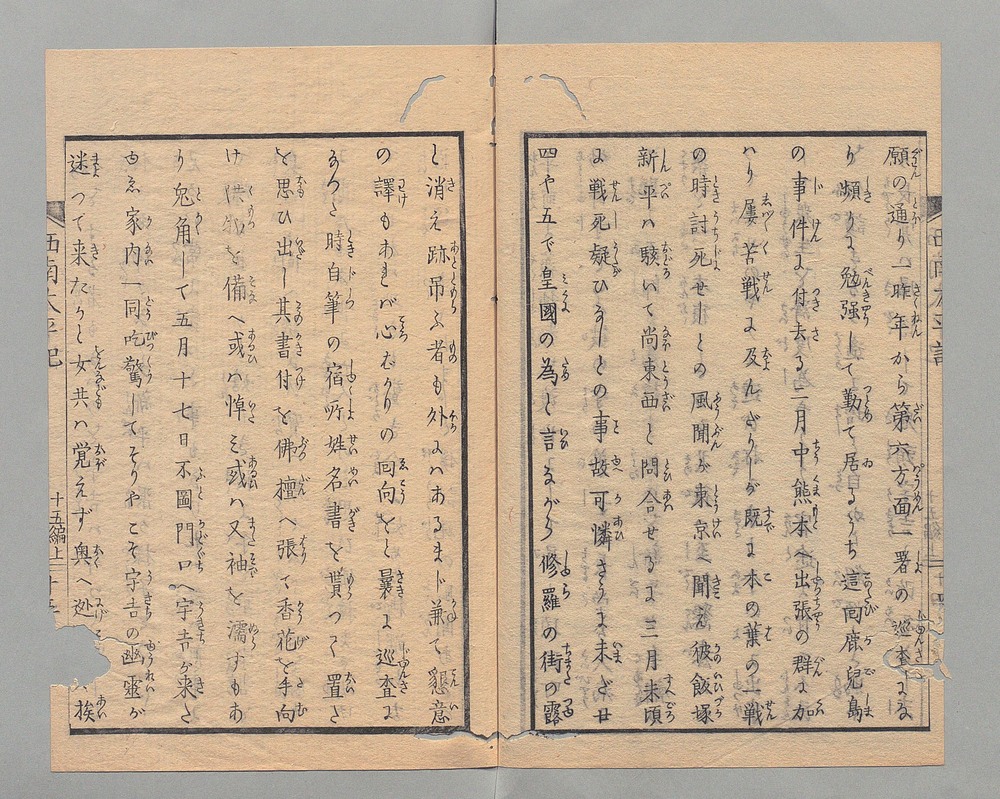 願の通り一昨年から第六方面一署の巡査にな
り頻りに勉強して勤て居るうち這回鹿児島
の事件に付去る二月中熊本へ出張の群に加
ハり屡苦戦に及んぎりしが既に木の葉の一戦
の時討死せしとの風聞が東京へ聞え彼飯塚
新平ハ駭いて尚東西と問合せるに三月末頃
に戦死疑ひなしとの事故可憐さうに未だ廿
四や五で皇國の為と言ながら修羅の街の露
と消え跡吊ふ者も外にハあるまじ兼て懇意
の譯もあれバ心ばかりの回向をと曩に巡査に
なつた時自筆の宿所姓名書を貰つて置た
を思ひ出し其書付を佛檀へ張て香花を手向
け供物を備へ或ハ悼ミ或ハ又袖を濡すもあ
り兎角して五月十七日不圖門口へ宇吉が来た
ゆゑ家内一同吃驚してそりやこそ宇吉の幽霊が
迷つて来たかと女共ハ覚えず奥へ迯 挨
西南太平記
十五編上